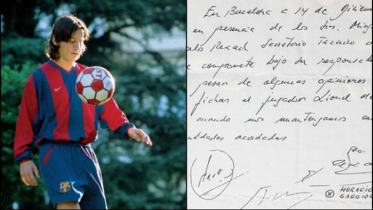 En Barcelona a 14 de Diciem
en presencia de los Sres. Ming
Carlos Rexach Secretario Técnico
compromete bajo su responsab
pesar de algunas opiniones
fichar al jugador Lionel
cuando nos mantengamos en
ntidades acordadas
HORACIO
GAGGIOLI